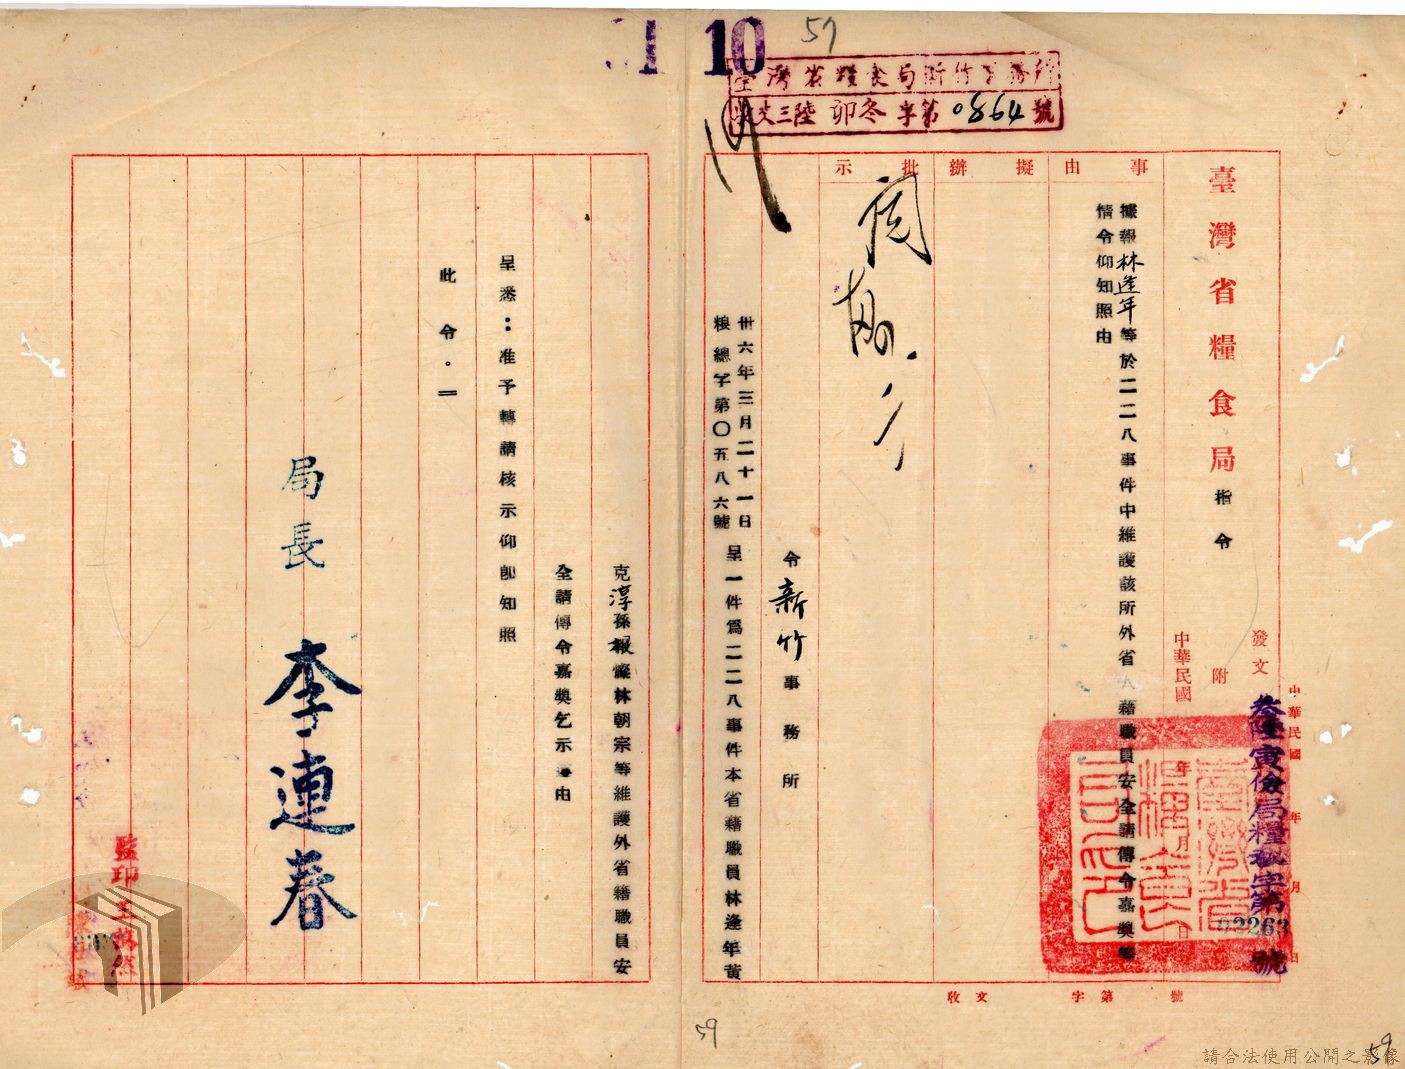 10
59
臺灣省糧食局新竹事務所
收文三陸卯冬字第0864號
臺灣省糧食局指令
發文
附
中華民國 年 月 日
中華民國 年 月 日
叁陸寅儉局糧秘字第02263號
事由
擬辦
批示
據報林逢年等於二二八事件中維護該所外省人籍職員安全請傳令嘉獎等
情令仰知照由
令新竹事務所
卅六年三月二十一日
粮總字第〇五八六號
呈一件為二二八事件本省籍職員林逢年黃
克淳孫報燦林朝宗等維護外省籍職員安
全請傳令嘉獎乞示由
呈悉：准予轉請核示仰卽知照
此令。
局長 李連春
監印王
收文 字第 號
59
59
請合法使用公開之影像